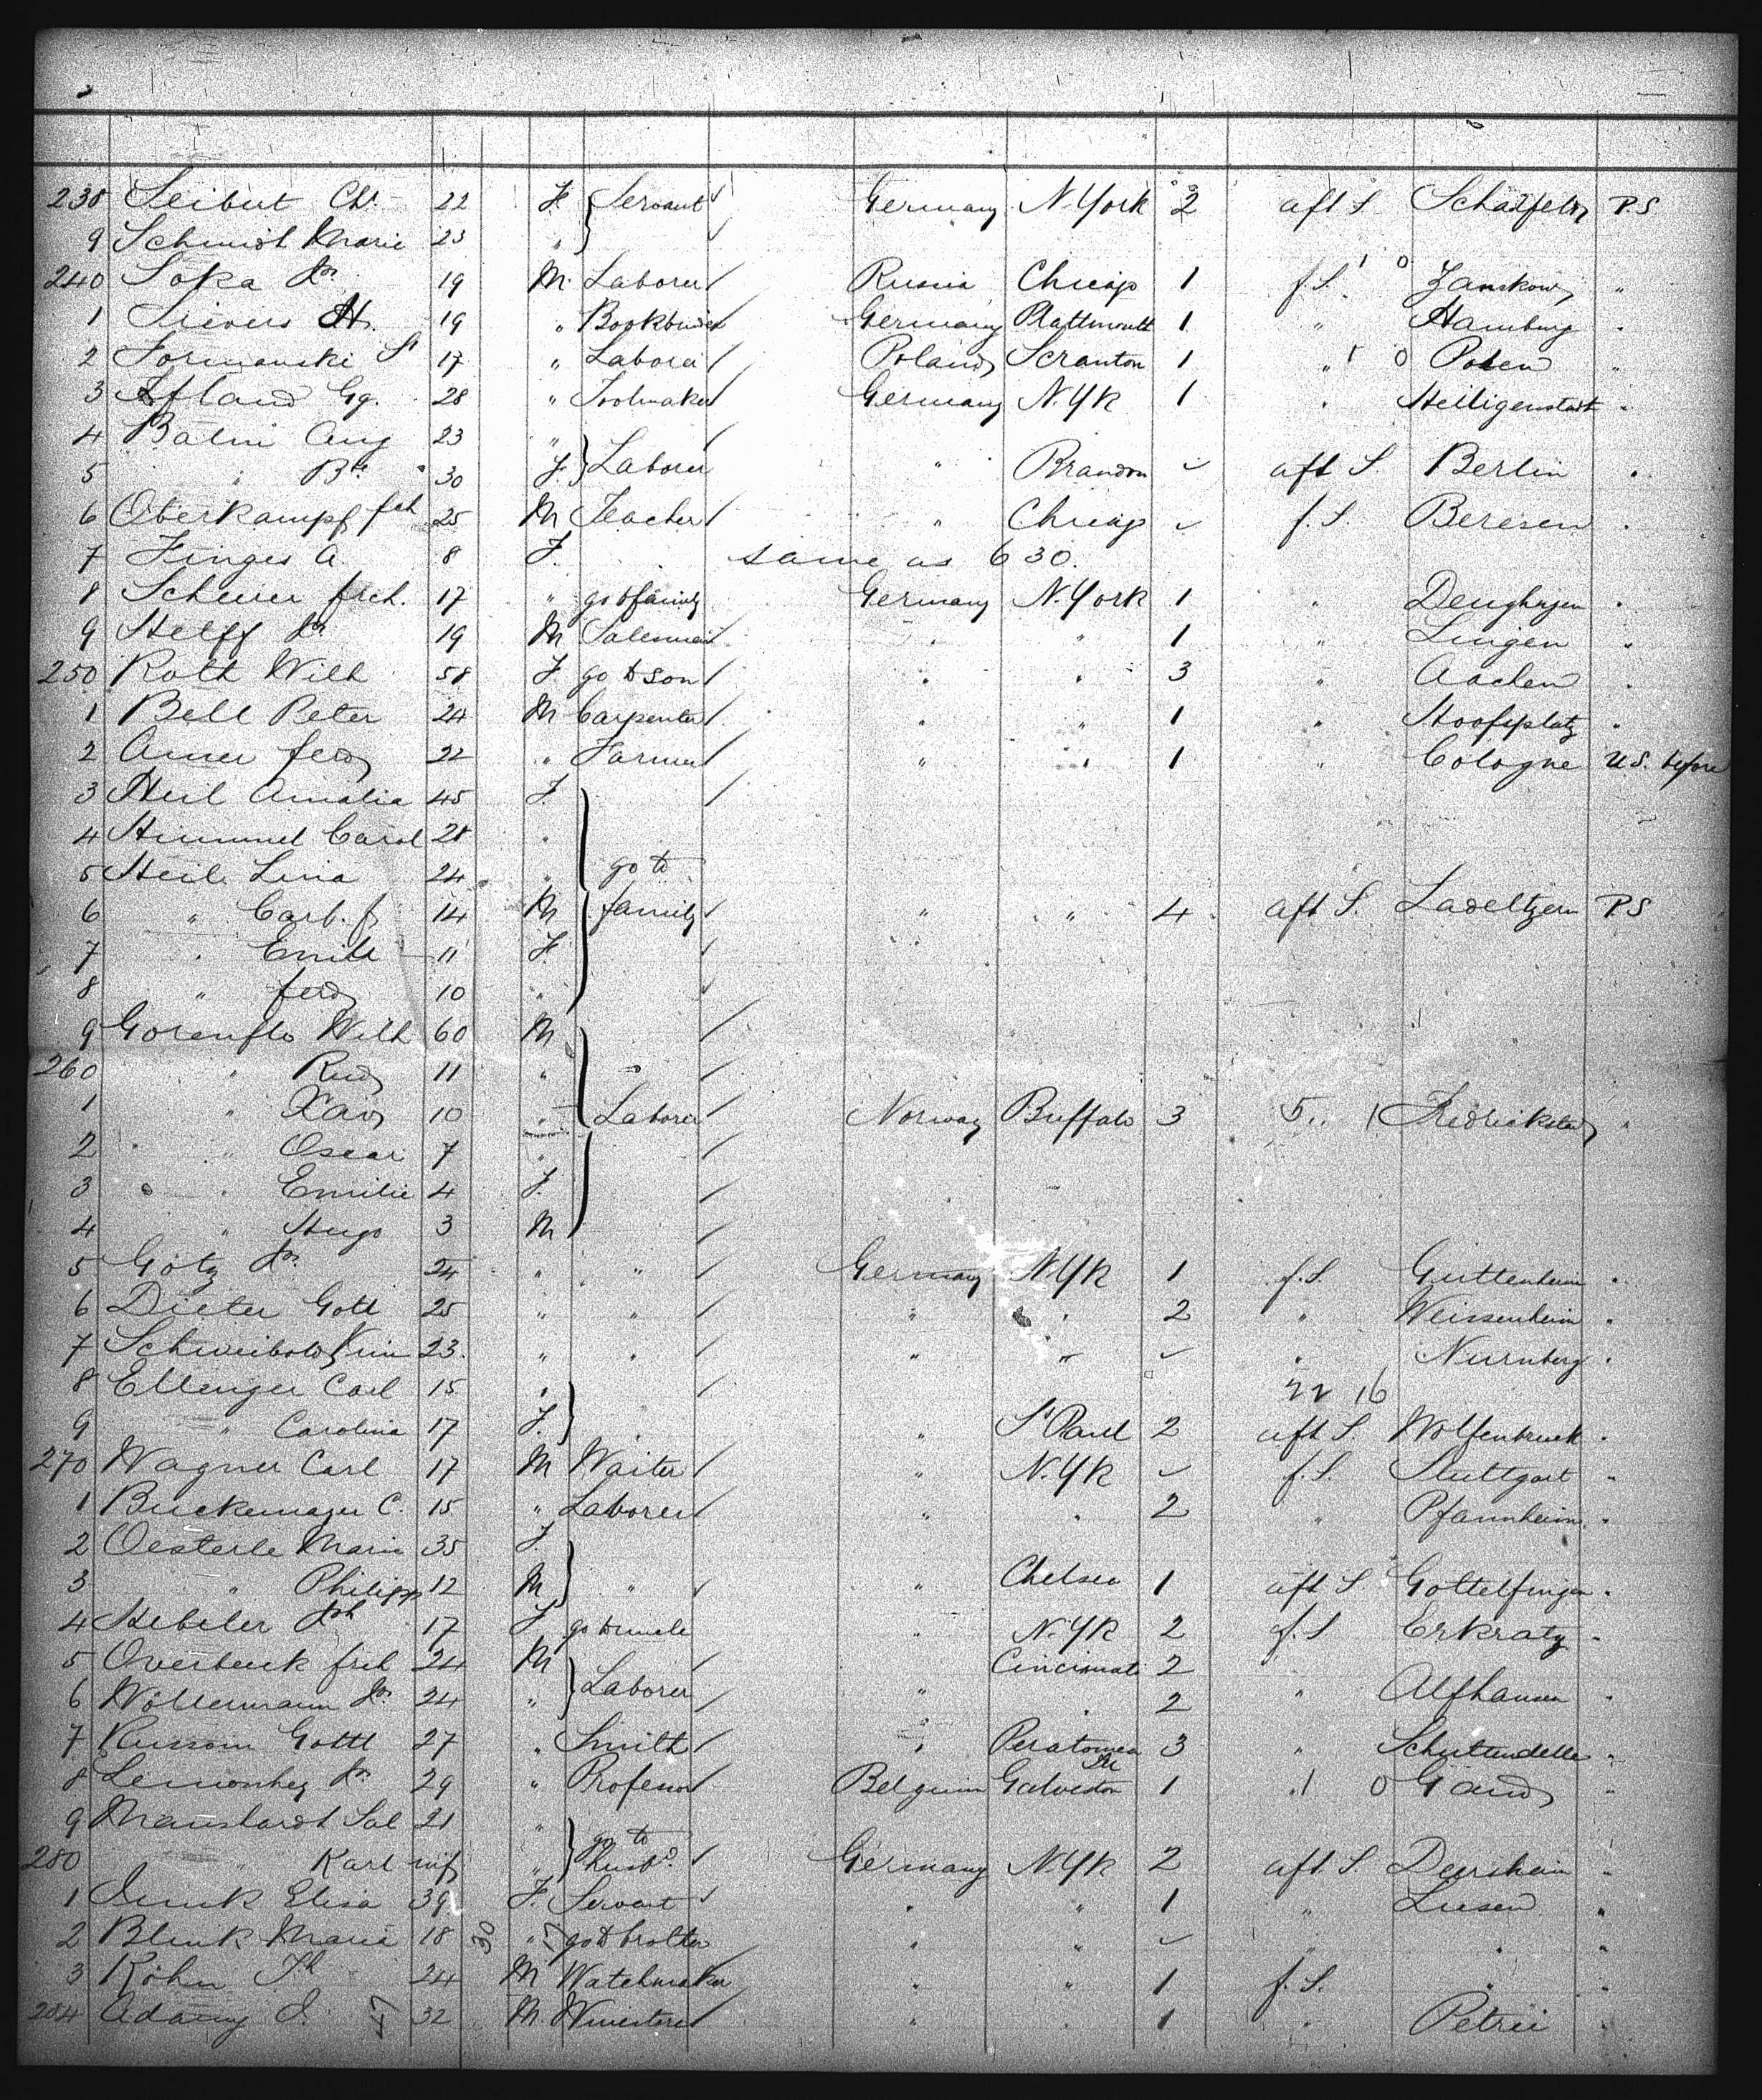 238 Seibert Ch. 22 F Servant Germany N.York 2 aft S Schaffeld P.S
9 Schmidt Marie 23 "
240 Soka 19 M. Laborer Russia Chicago 1 f.S. 1 0 Zanskow "
1 Sievers H. 19 " Bookbinder Germany Plattmouth 1 " Hamburg "
2 Formanski St 17 " Laborer Poland Scranton 1 " 1 0 Posen "
3 Ifland Gg. 28 " Toolmaker Germany N.YK 1 " Heiligenstadt "
4 Balm Aug 23 "
5 " 30 F. Laborer " Brandon ✓ aft S Berlin "
6 Oberkampf fch 25 M Teacher " Chicago ✓ f.S. Beresen "
7 Finges A. 8 F. same as 630.
8 Scheuer frch. 17 " go to family Germany N.York 1 "
9 Helff 19 M Salesman " " 1 " Lingen "
250 Roth Wilh 58 F go to son " " 3 " Aachen "
1 Bell Peter 24 M Carpenter " " 1 " Hoofsplatz "
2 Auer ferd 22 " Farmer " " 1 " Cologne U.S. before
3 Heil Amalia 45 F.
4 Himmel Carol 28 "
5 Heil Lina 24 " go to
6 " Carb. f 14 M family " " 4 aft S. Ladeltzern P.S
7 " Emill 11 F
8 " ferd 10 "
9 Gorenflo Wilh 60 M
260 " Rud 11 "
1 " Xav 10 " Laborer Norway Buffalo 3 5.. 1 Fredrickstad "
2 " Oscar 7 "
3 " Emilie 4 F.
4 " Hugo 3 M
5 Götz 24 " " Germany N.YK 1 f.S. Guttenheim "
6 Dieter Gott 25 " " " " 2 " Weissenheim "
7 Schweibold 23 " " " " ✓ " Nurnberg "
8 Ellenger Carl 15 " 16
9 " Carolina 17 F. " " St Paul 2 aft S Wolfenbruck "
270 Wagner Carl 17 M Waiter " N.YK ✓ f.S. Stuttgart "
1 Buckemayer C. 15 " Laborer " " 2 " Pfannheim "
2 Oesterle Marie 35 F.
3 " Philipp 12 M " " Chelsea 1 aft S Gottelfingen "
4 Hebeler 17 F go to uncle " N.YK 2 f.S Erkratz "
5 Overbeck frch 24 M Cincinnati 2
6 Wöltermann 24 " Laborer " " 2 " Alfhausen "
7 Russom Gottl 27 " Smith " 3 " Schuttendelle "
8 29 " Professor Belguim Galveston 1 " 1 0 Gand "
9 Manshardt Sal 21 " go to
280 " Karl inf " husbd Germany N.YK 2 aft S "
1 Elisa 39 F. Servant " " 1 " Liesen "
2 Blink Maria 18 " go to brother " " ✓ " " "
3 Köhn 24 M Watchmaker " " 1 f.S. " "
284 Adamy J. 32 M. " " 1 " Petrii "